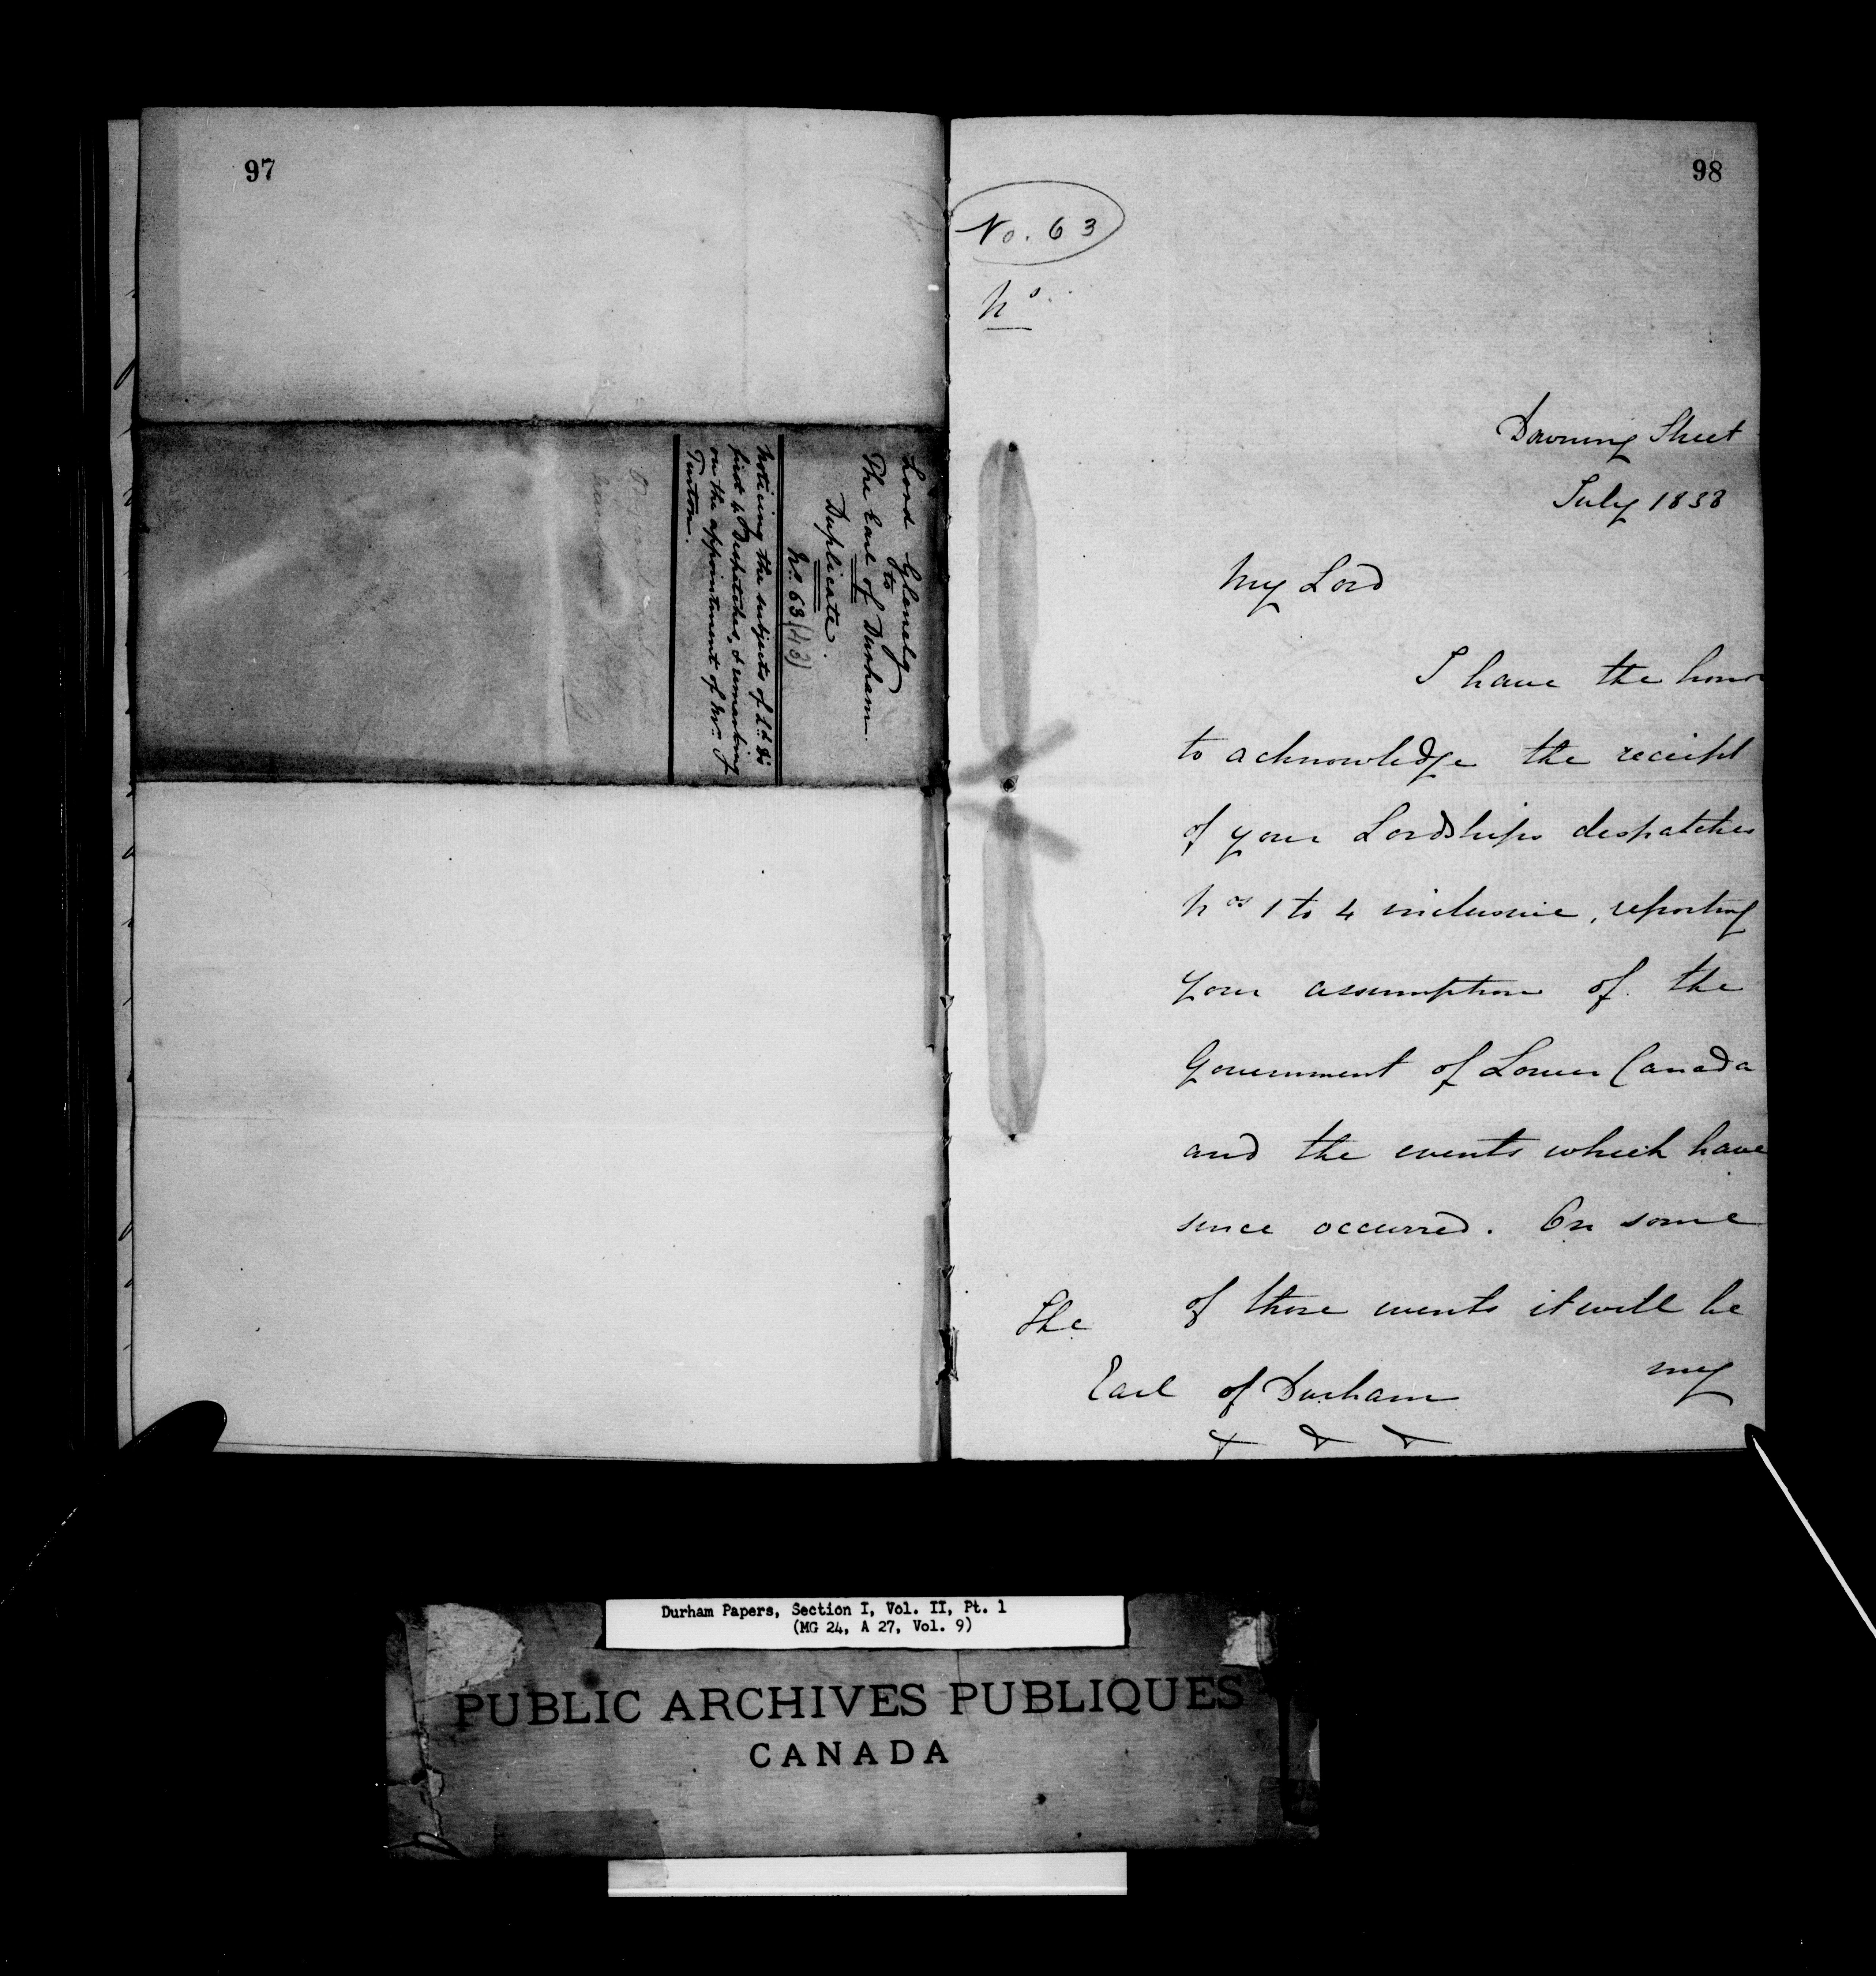 97
Lord Glenelg
to
The Earl of Durham.
Duplicate.
No. 63 (43)
Noticing the subjects of Ld. D's
first 4 Despatches, & remarking
on the appointment of Mr.
Turton.
98
No. 63
No
Downing Street
July 1838
My Lord
I have the honor
to acknowledge the receipt
of your Lordships despatches
Nos 1 to 4 inclusive, reporting
your assumption of the
Government of Lower Canada
and the events which have
since occurred. On some
of those events it will be
my
The
Earl of Durham
& & &
Durham Papers, Section I, Vol. II, Pt. 1
(MG 24, A 27, Vol. 9)
PUBLIC ARCHIVES PUBLIQUES
CANADA